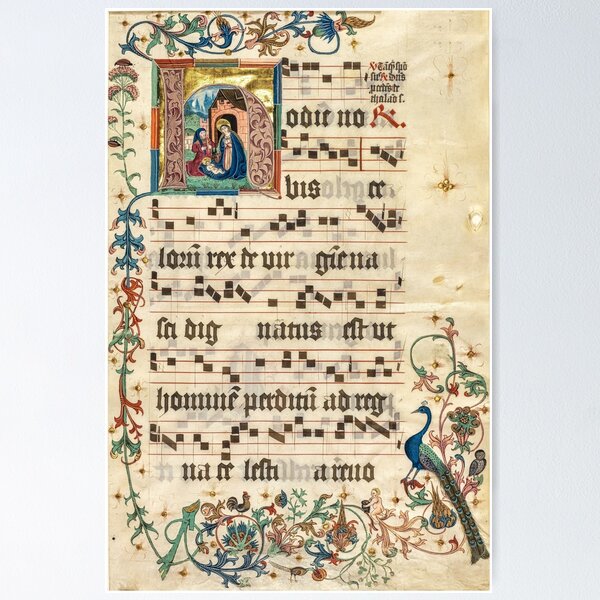 Hodie no R.
bis ce
lorū rex de vir gīe na
sci dig natus est ut
hominē perditū ad reg
na ce lesti a revo